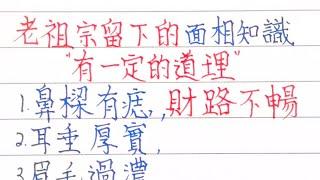 老祖宗留下的面相知識
"有一定的道理"
1.鼻樑有痣,財路不暢
2.耳垂厚實,
3.眉毛過濃